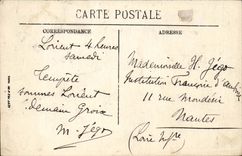 CARTE POSTALE
CORRESPONDANCE
ADRESSE
Lorient 4 heures
samedi
Tempête
sommes Lorient
demain Groix
M. Jégo
Mademoiselle H. Jégo
Institution Française
11 rue Mondésir
Nantes
Loire Infre